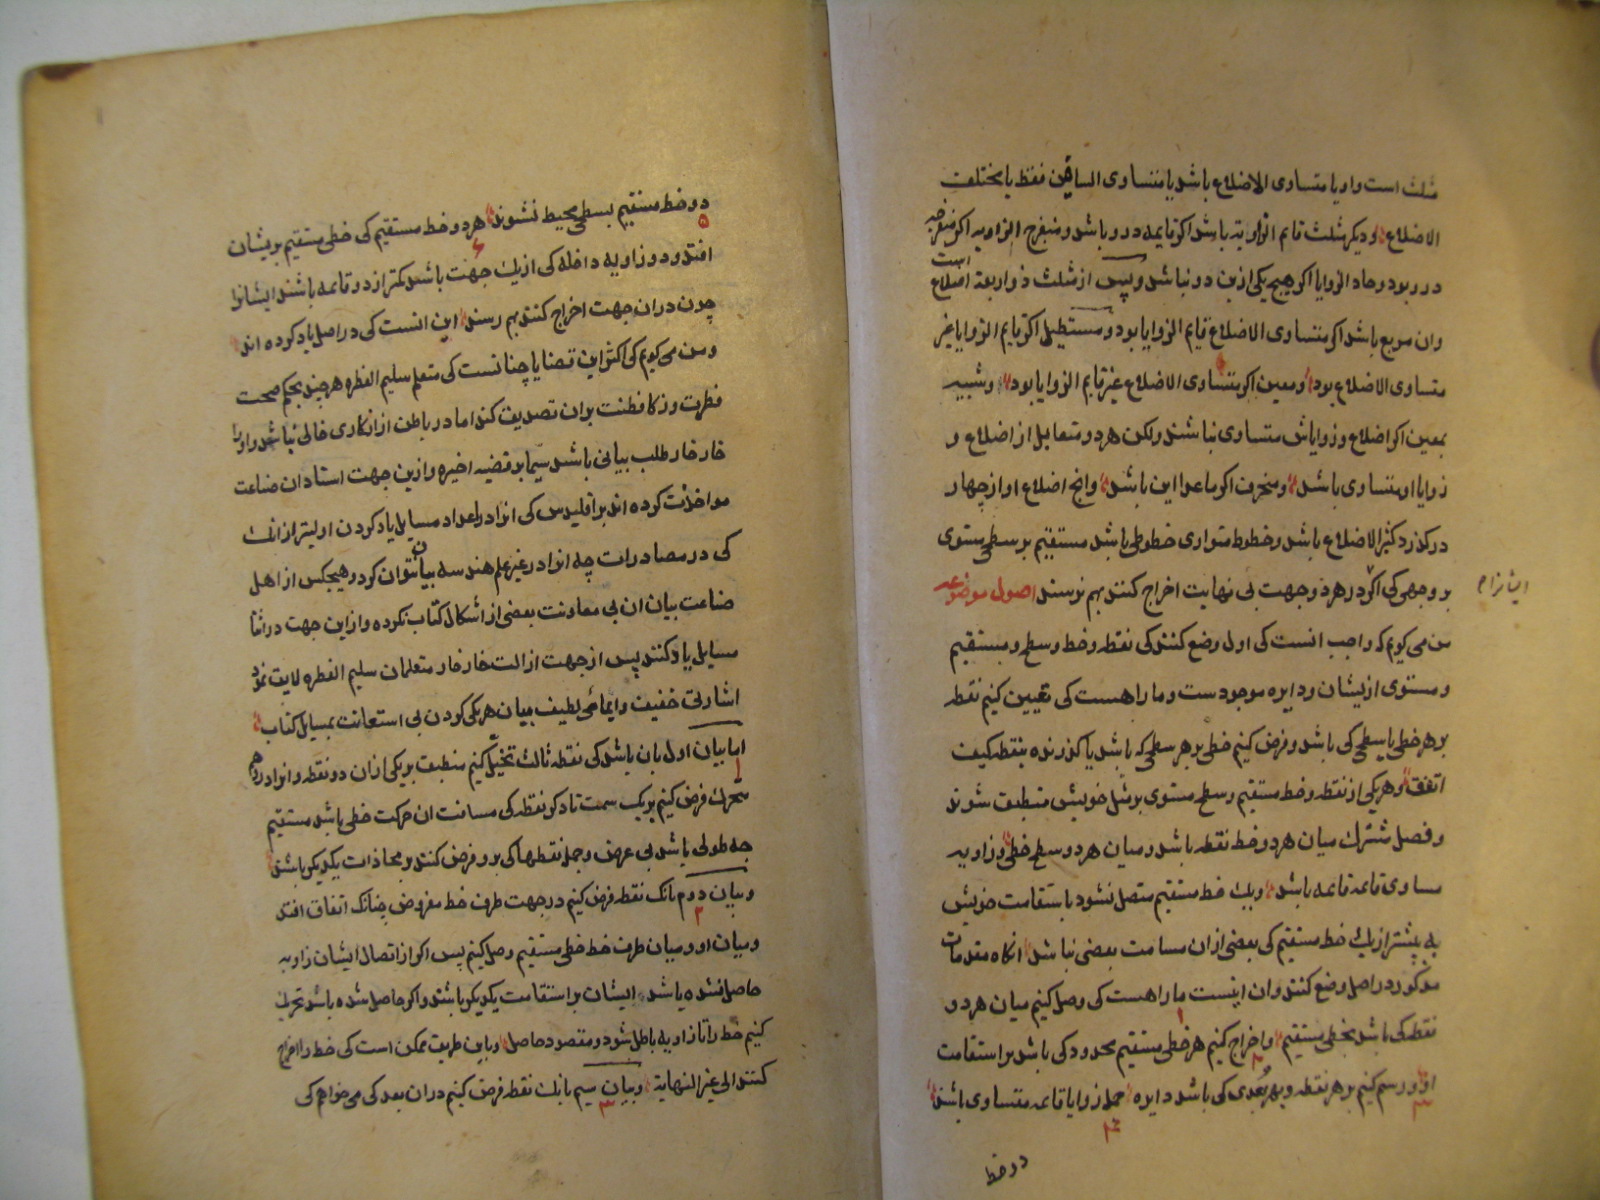 مثلث است و او یا متساوی الاضلاع باشد یا متساوی الساقین فقط یا مختلف
الاضلاع و دیگر مثلث قایم الزاویة باشد اکر قایمه درو باشد و منفرج الزاویه اکر منفرجه
درو بود و حاد الزوایا اکر هیچ یکی ازین دو نباشد و پس از مثلث ذو اربعة اضلاع است
وان مربع باشد اکر متساوی الاضلاع قایم الزوایا بود و مستطیل اکر قایم الزوایا غیر
متساوی الاضلاع بود و معین اکر متساوی الاضلاع غیر قایم الزوایا بود و شبیه
بمعین اکر اضلاع و زوایاش متساوی نباشند ولکن هر دو متقابل از اضلاع و
زوایا او متساوی باشد و منحرف اکر ماعدا این باشد وانچ اضلاع او از چهار
درکذرد کثیر الاضلاع باشد و خطوط متوازی خطوطی باشد مستقیم بر سطحی مستوی
بر وجهی کی اکر در هر دو جهت بی نهایت اخراج کنند بهم نرسند اصول موضوعه
من می کویم که واجب انست کی اول وضع کنند کی نقطه و خط و سطح و مستقیم
و مستوی ازیشان و دایره موجودست و ما را هست کی تعیین کنیم نقطه
بر هر خطی یا سطحی کی باشد و فرض کنیم خطی بر هر سطحی که باشد یا کذرنده بنقطه کیف
اتفق و هر یکی از نقطه و خط مستقیم و سطح مستوی بر مثل خویش منطبق شوند
و فصل مشترک میان هر دو خط نقطه باشد و میان هر دو سطح خطی و زاویه
مساوی قایمه قایمه باشد و یک خط مستقیم متصل نشود باستقامت خویش
به بیشتر از یک خط مستقیم کی بعضی ازان مسامت بعضی نباشد انکاه مقدمات
مذکور در اصل وضع کنند وان اینست ما را هست کی وصل کنیم میان هر دو
نقطه کی باشد بخطی مستقیم و اخراج کنیم هر خطی مستقیم محدود کی باشد بر استقامت
او و رسم کنیم بر هر نقطه و بهر بعدی کی باشد دایره جمله زوایا قایمه متساوی باشند
دو خط
دو خط مستقیم بسطحی محیط نشوند هر دو خط مستقیم کی خطی مستقیم بریشان
افتد و دو زاویه داخله کی از یک جهت باشد کمتر از دو قایمه باشند ایشانرا
چون دران جهت اخراج کنند بهم رسند این انست کی در اصل یاد کرده اند
و من می کویم کی اکثر این قضایا چنانست کی متعلم سلیم الفطره هر چند بحکم صحت
فطرت و ذکا فطنت بران تصدیق کند اما در باطن از انکاری خالی نباشد و اورا
خارخار طلب بیانی باشد سیما بر قضیه اخیره و ازین جهت استادان صناعت
مواخذت کرده اند بر اقلیدس کی انرا در اعداد مسایل یاد کردن اولیتر ازانک
کی در مصادرات چه انرا در غیر علم هندسه بیان نتوان کرد و هیچکس از اهل
صناعت بیان ان بی معاونت بعضی از اشکال کتاب نکرده و ازین جهت در اثنا
مسایل یاد کنند پس از جهت ازالت خارخار متعلمان سلیم الفطره لایق نمود
اشارتی خفیف و ایمائی لطیف ببیان هر یکی کردن بی استعانت بمسایل کتاب
اما بیان اول بان باشد کی نقطه ثالث تخیل کنیم منطبق بر یکی ازان دو نقطه و انرا در وهم
متحرک فرض کنیم بر یک سمت تا دیکر نقطه کی مسافت ان حرکت خطی باشد مستقیم
چه طولی باشد بی عرض و جمله نقطها کی برو فرض کنند بر محاذات یکدیکر باشند
و بیان دوم بانک نقطه فرض کنیم در جهت طرف خط مفروض چنانک اتفاق افتد
و میان او و میان طرف خط خطی مستقیم وصل کنیم پس اکر از اتصال ایشان زاویه
حاصل نشده باشد ایشان بر استقامت یکدیکر باشند و اکر حاصل شده باشد تحریک
کنیم خط را تا زاویه باطل شود و مقصود حاصل و باین طریق ممکن است کی خط را اخراج
کنند الی غیر النهایة و بیان سیم بانک نقطه فرض کنیم دران بعد کی می خواهم کی